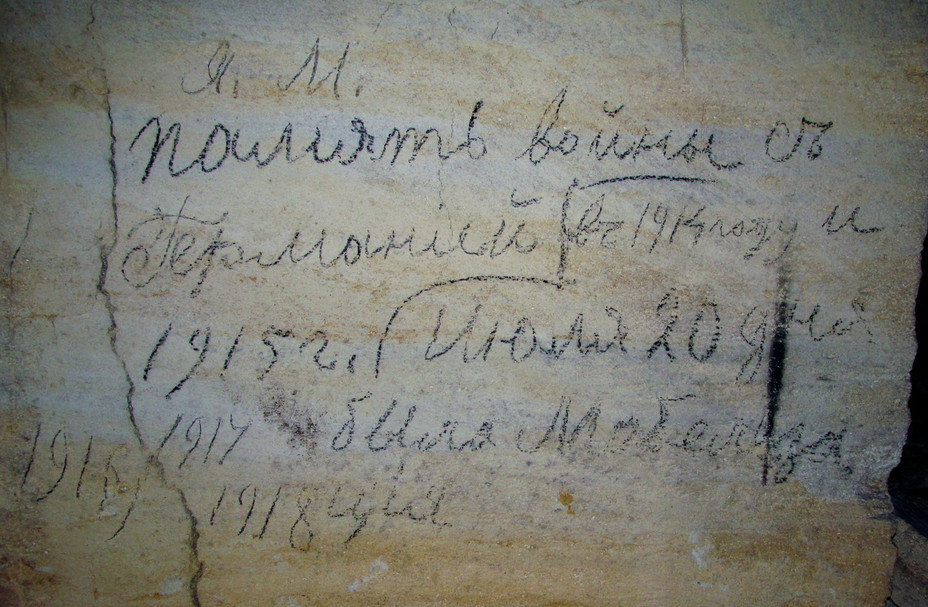 Я. М.
память войны съ
Германией въ 1914 году и
1915 г. Июля 20 дня
1916 1917 была Мобелиза
1918 ция